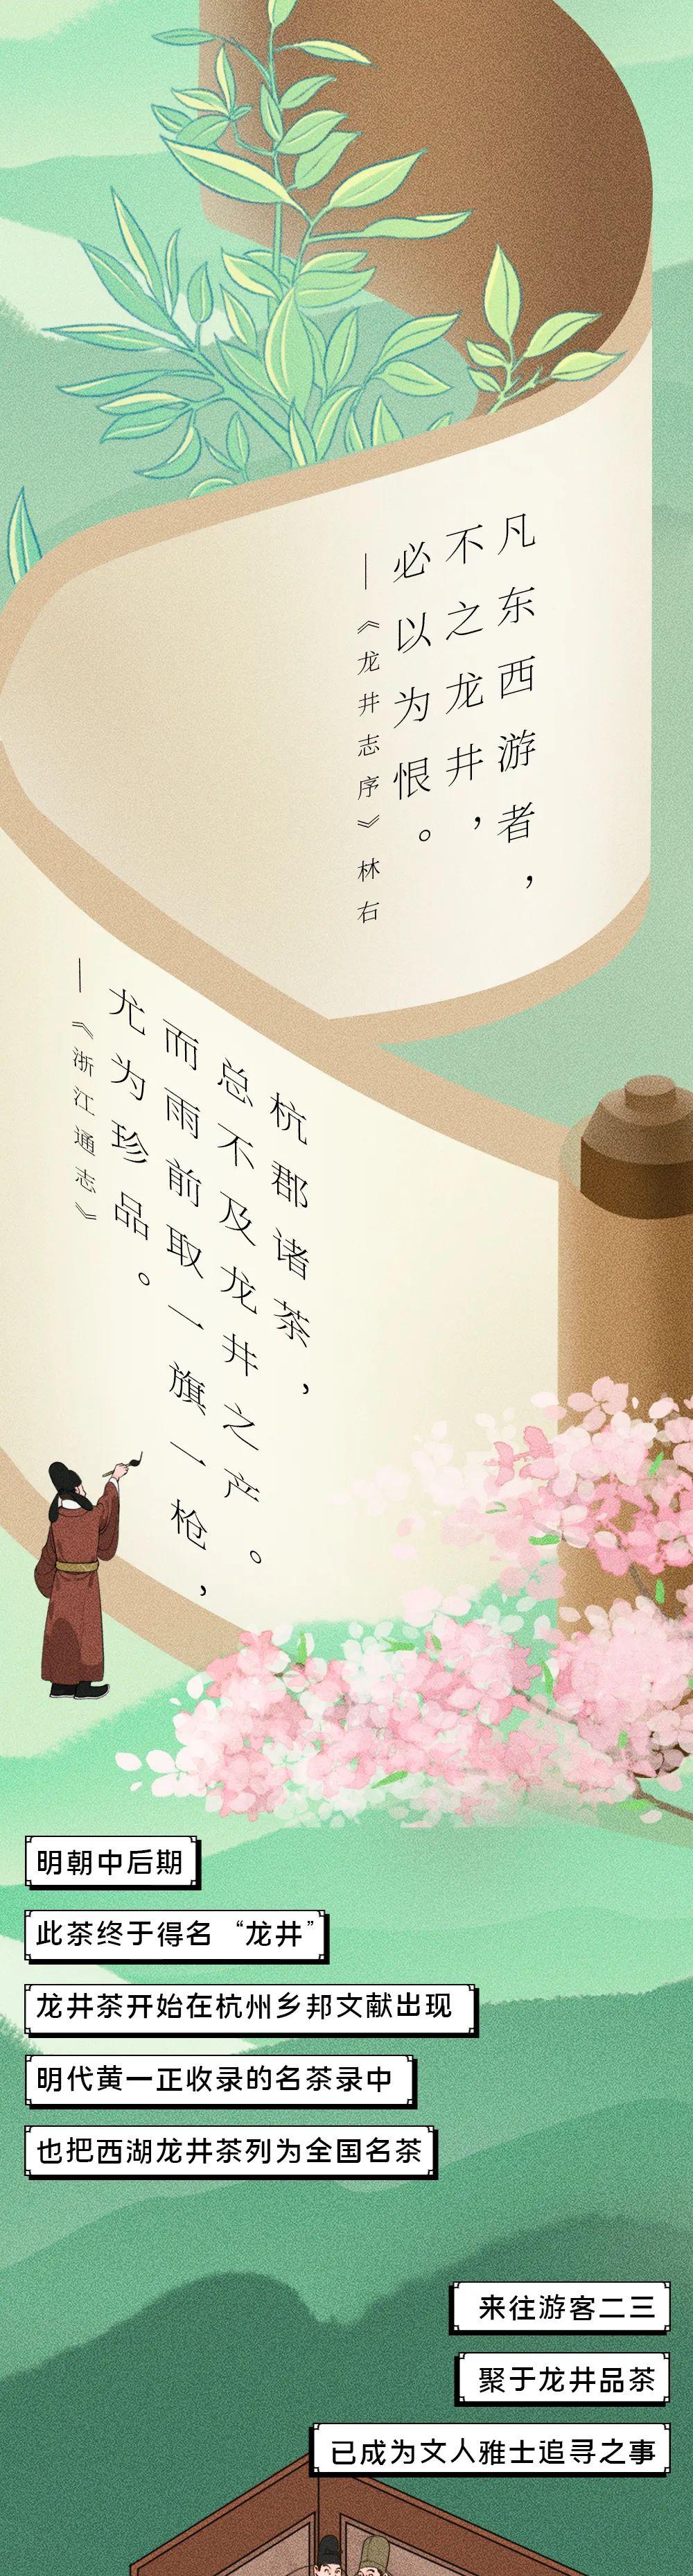 凡东西游者，
不之龙井，
必以为恨。
—《龙井志序》林右
杭郡诸茶，
总不及龙井之产。
而雨前取一旗一枪，
尤为珍品。
—《浙江通志》
明朝中后期
此茶终于得名“龙井”
龙井茶开始在杭州乡邦文献出现
明代黄一正收录的名茶录中
也把西湖龙井茶列为全国名茶
来往游客二三
聚于龙井品茶
已成为文人雅士追寻之事